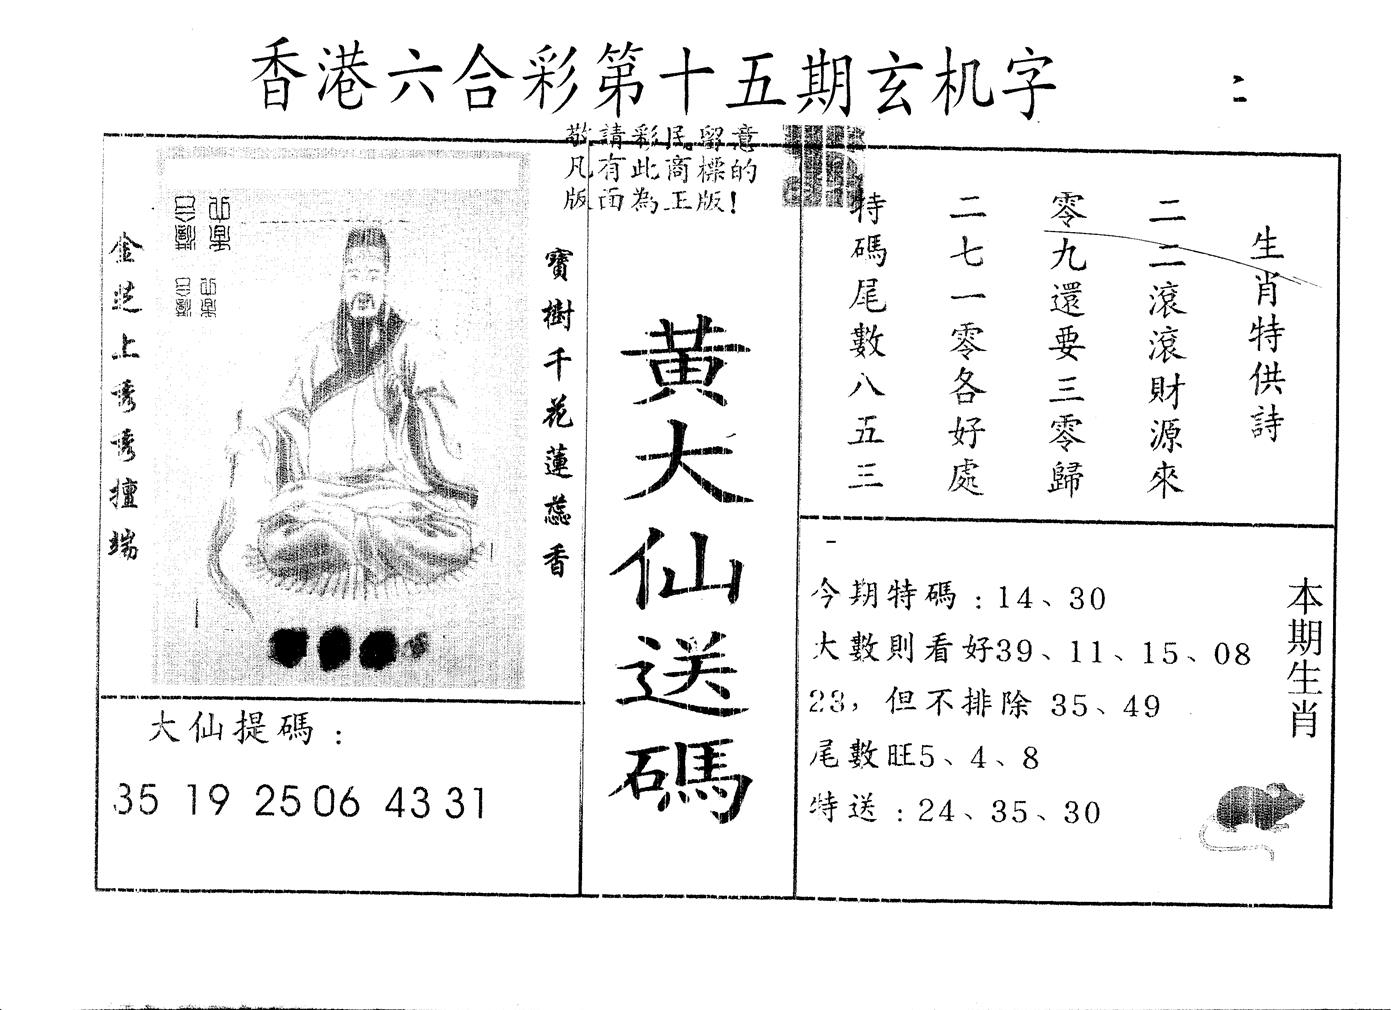 香港六合彩第十五期玄机字
敬請彩民留意
凡有此商標的
版面為正版!
生肖特供詩
二二滾滾財源來
零九還要三零歸
二七一零各好處
特碼尾數八五三
寶樹千花蓮蕊香
金 上 擅端
黃大仙送碼
大仙提碼:
35 19 25 06 43 31
今期特碼:14、30
大數則看好39、11、15、08
23,但不排除 35、49
尾數旺5、4、8
特送:24、35、30
本期生肖